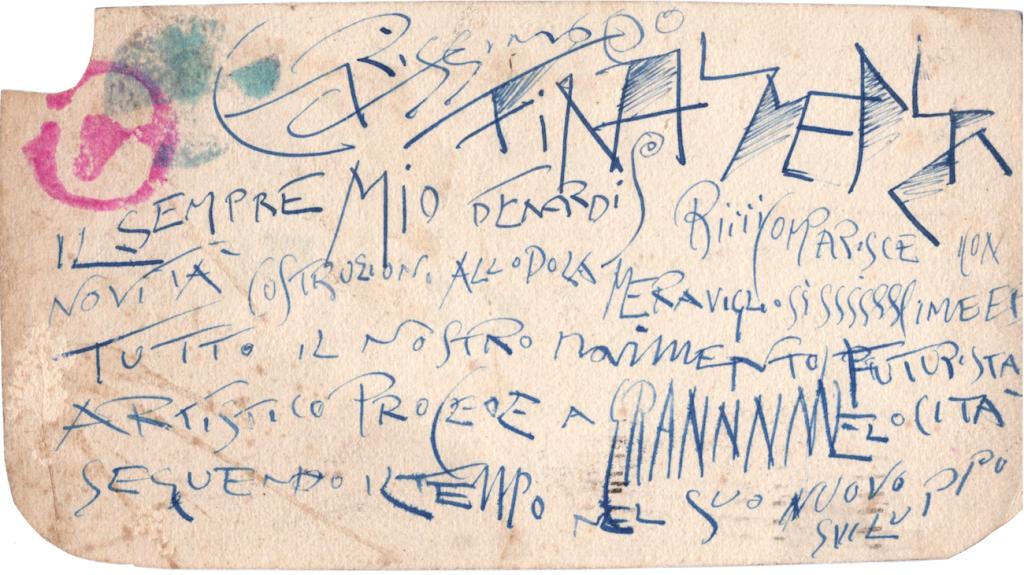 Carissimo
FINALMENTE
IL SEMPRE MIO DENARDIS RiiiiCOMPARISCE CON
NOVITÀ COSTRUZIONI ALLODOLA MERAVIGLiOSiSSSSSSSSIME E
TUTTO IL NOSTRO MOVIMENTO FUTURISTA
ARTISTICO PROCEDE A GRANNNN VELOCITÀ
SEGUENDO IL TEMPO NEL SUO NUOVO
SVILUPPO